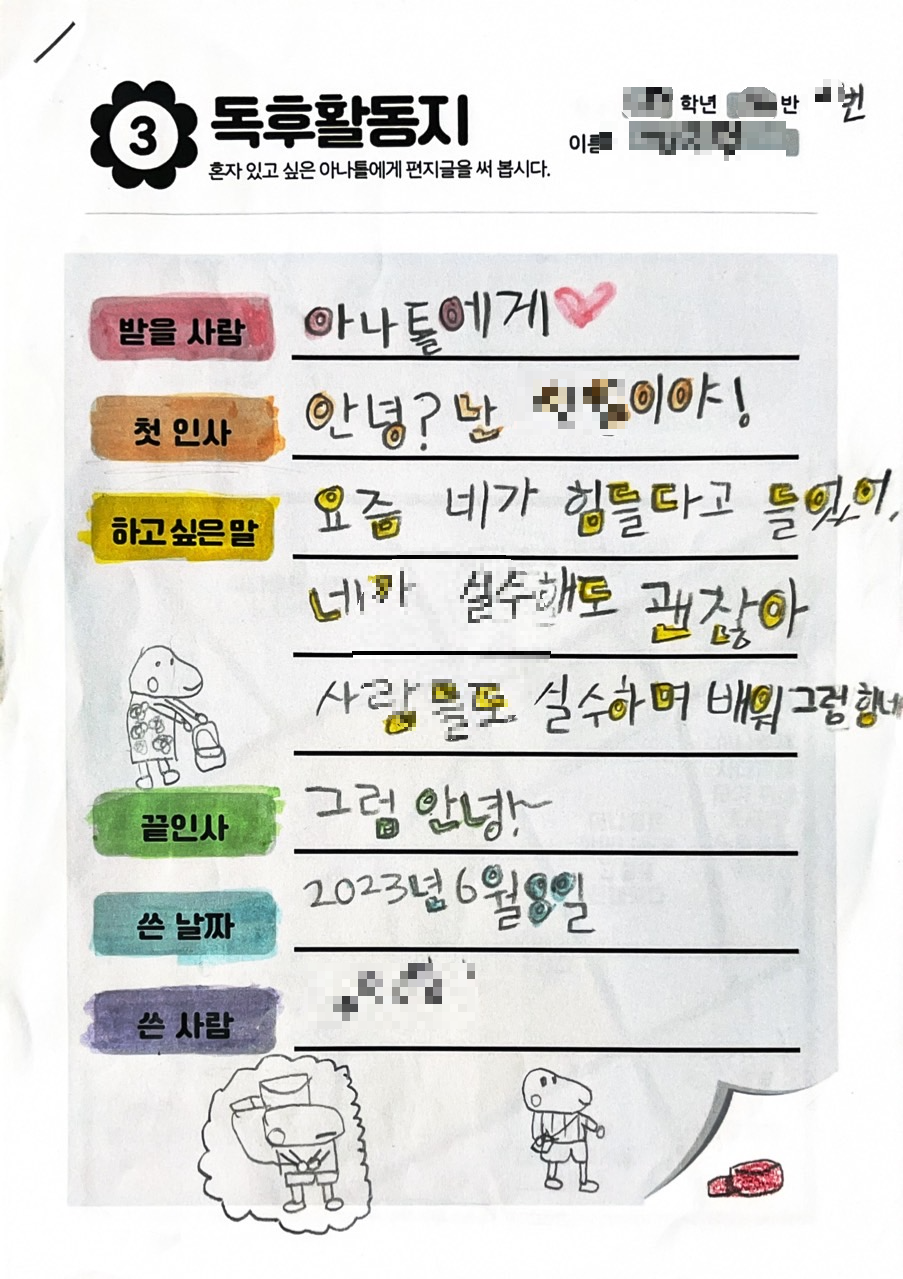 3
독후활동지
학년 반 번
이름
혼자 있고 싶은 아나톨에게 편지글을 써 봅시다.
받을 사람 아나톨에게
첫 인사 안녕? 난 이야!
하고 싶은 말 요즘 네가 힘들다고 들었어.
네가 실수해도 괜찮아
사람들도 실수하며 배워 그럼 힘내
끝인사 그럼 안녕!~
쓴 날짜 2023년 6월 8일
쓴 사람